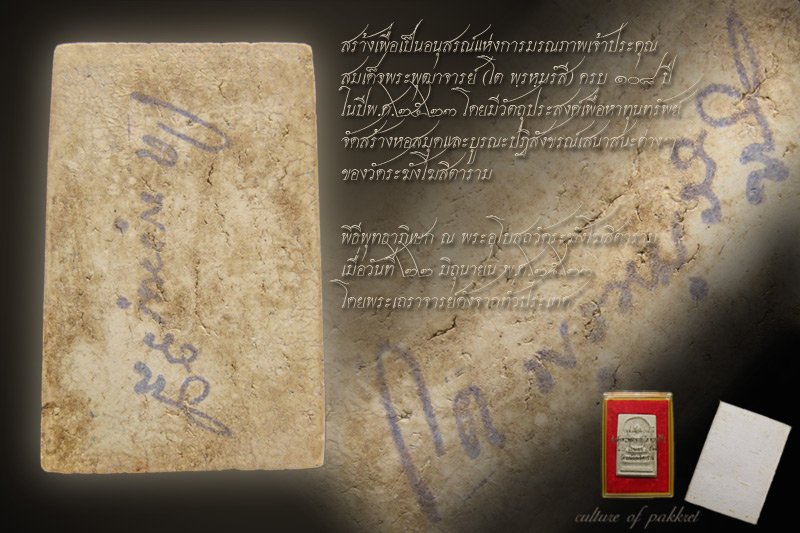 สร้างเพื่อเป็นอนุสรณ์แห่งการมรณภาพเจ้าประคุณ
สมเด็จพระพุฒาจารย์ (โต พฺรหฺมรํสี) ครบ ๑๐๘ ปี
ในปีพ.ศ.๒๕๒๓ โดยมีวัตถุประสงค์เพื่อหาทุนทรัพย์
จัดสร้างหอสมุดและบูรณะปฏิสังขรณ์เสนาสนะต่าง ๆ
ของวัดระฆังโฆสิตาราม
พิธีพุทธาภิเษก ณ พระอุโบสถวัดระฆังโฆสิตาราม
เมื่อวันที่ ๒๒ มิถุนายน พ.ศ.๒๕๒๓
โดยพระเถราจารย์ดังจากทั่วประเทศ
culture of pakkret